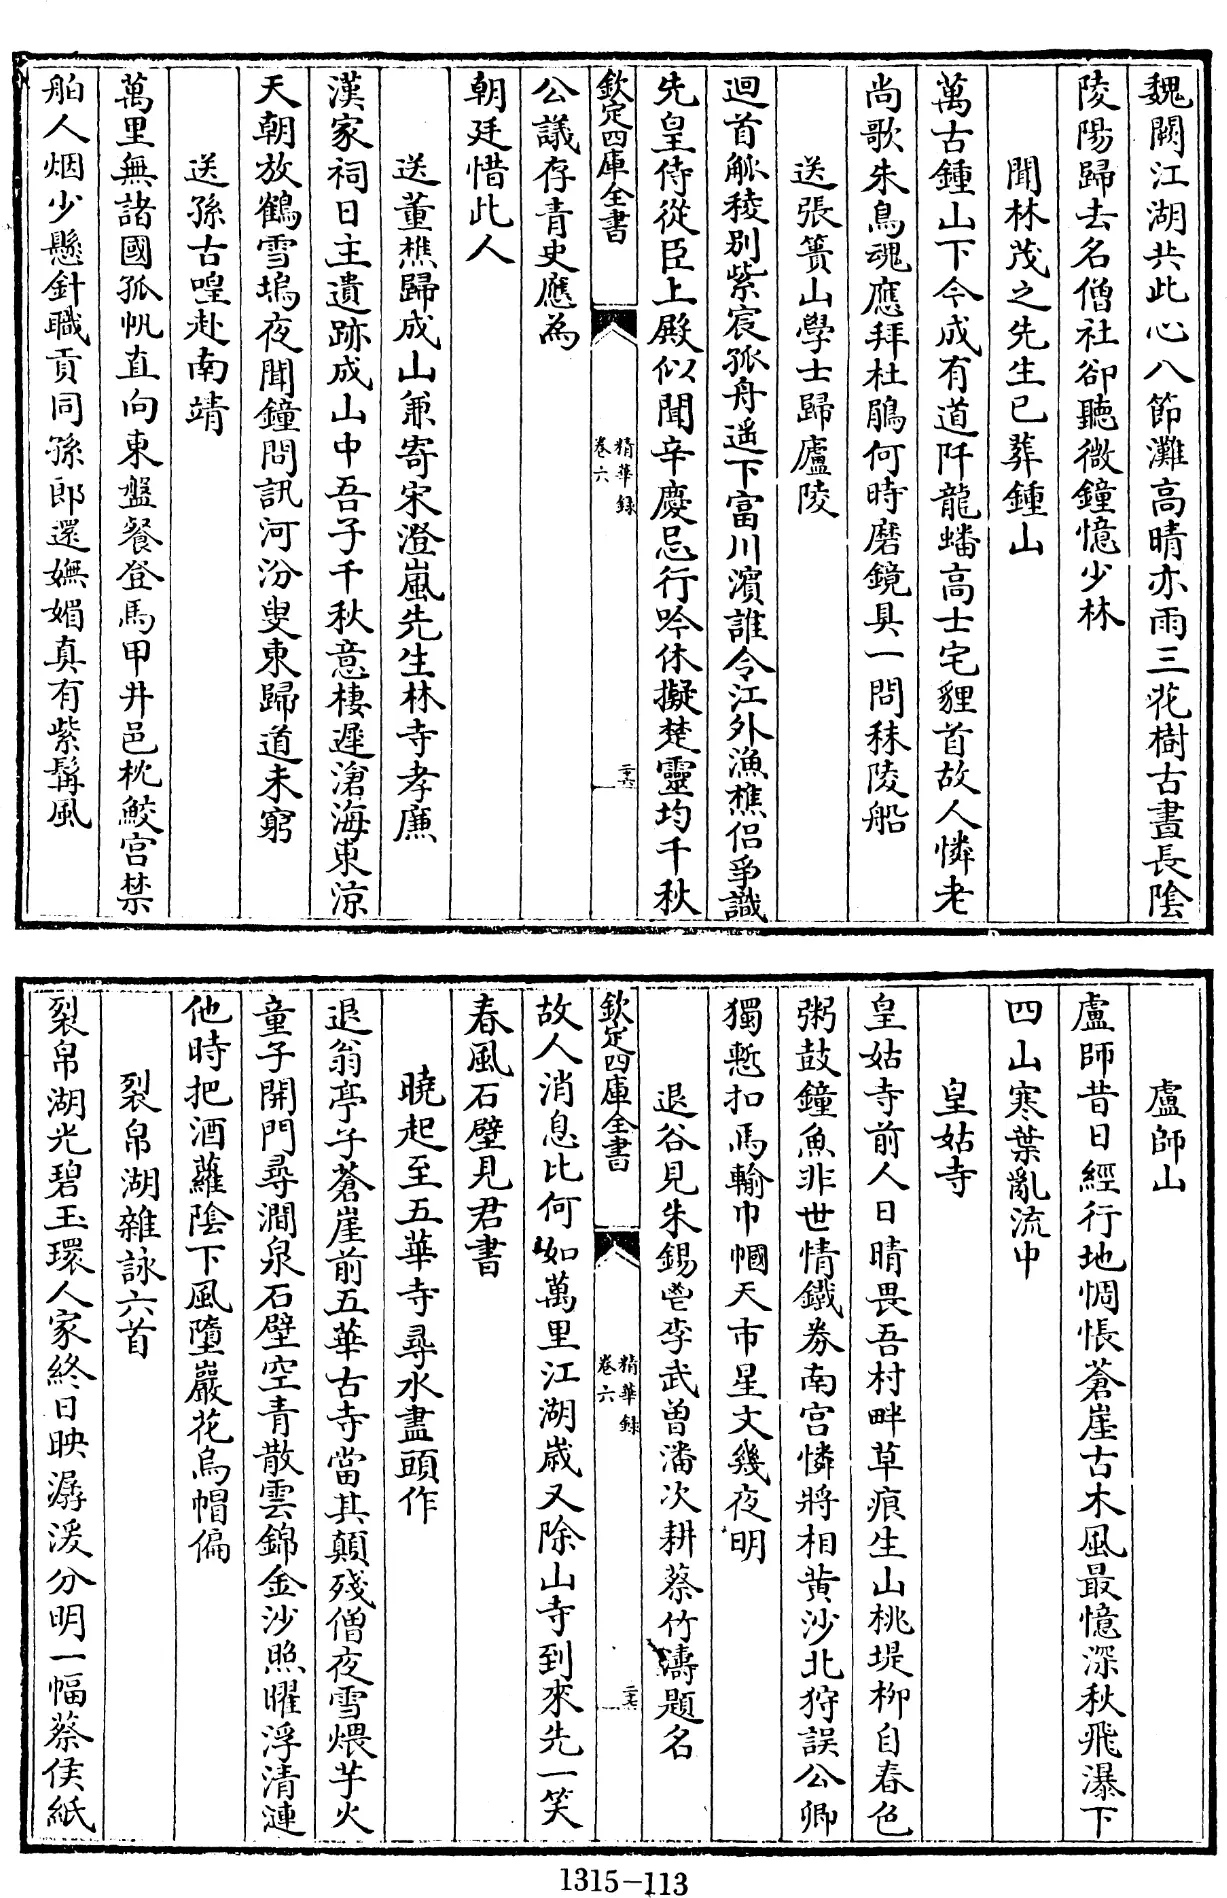 魏闕江湖共此心八節灘高晴亦雨三花樹古晝長陰
陵陽歸去名僧社卻聽微鐘憶少林
聞林茂之先生已葬鍾山
萬古鍾山下今成有道阡龍蟠高士宅貍首故人憐老
尚歌朱鳥魂應拜杜鵑何時磨鏡具一問秣陵船
送張簣山學士歸廬陵
迴首觚稜別紫宸孤舟遥下富川濱誰令江外漁樵侣爭識
先皇侍從臣上殿似聞辛慶忌行吟休擬楚靈均千秋
欽定四庫全書
精華録
卷六
二六
公議存青史應為
朝廷惜此人
送董樵歸成山兼寄宋澄嵐先生林寺孝廉
漢家祠日主遺跡成山中吾子千秋意棲遲滄海東涼
天朝放鶴雪塢夜聞鐘問訊河汾叟東歸道未窮
送孫古喤赴南靖
萬里無諸國孤帆直向東盤餐登馬甲井邑枕鮫宮禁
船人烟少懸針職貢同孫郎還嫵媚真有紫髯風
盧師山
盧師昔日經行地惆悵蒼崖古木風最憶深秋飛瀑下
四山寒葉亂流中
皇姑寺
皇姑寺前人日晴畏吾村畔草痕生山桃堤柳自春色
粥鼓鐘魚非世情鐵券南宫憐將相黄沙北狩誤公卿
獨慙扣馬輸巾幗天市星文幾夜明
退谷見朱錫鬯李武曾潘次耕蔡竹濤題名
欽定四庫全書
精華録
卷六
二七
故人消息比何如萬里江湖歲又除山寺到來先一笑
春風石壁見君書
曉起至五華寺尋水盡頭作
退翁亭子蒼崖前五華古寺當其顛殘僧夜雪煨芋火
童子開門尋澗泉石壁空青散雲錦金沙照曜浮清漣
他時把酒蘿陰下風墮巖花烏帽偏
裂帛湖雜詠六首
裂帛湖光碧玉環人家終日映潺湲分明一幅蔡侯紙
1315-113